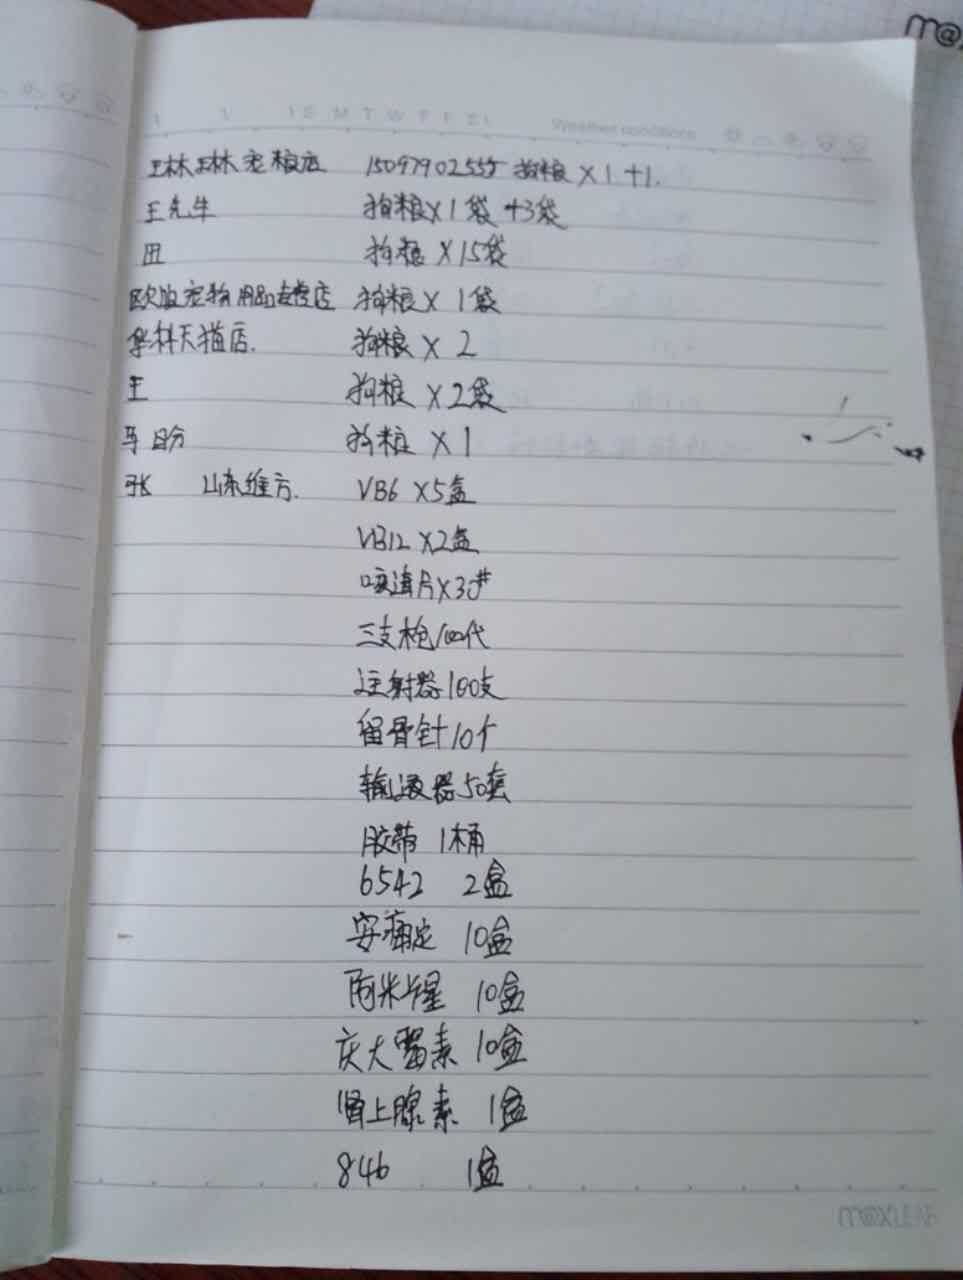 m@x
M T W F F S
Weather conditions
琳琳宠粮店 15097902555 狗粮×1+1.
王先生 狗粮×1袋+3袋
田 狗粮×15袋
宠物用品专营店 狗粮×1袋
华科天猫店. 狗粮×2
王 狗粮×2袋
车 狗粮×1
张 山东维方. VB6×5盒
VB12×2盒
片×3#
三支枪
注射器100支
留骨针10个
输液器50套
胶带 1桶
6542 2盒
安痛定 10盒
阿米卡星 10盒
庆大霉素 10盒
肾上腺素 1盒
846 1盒
m@xLEAF